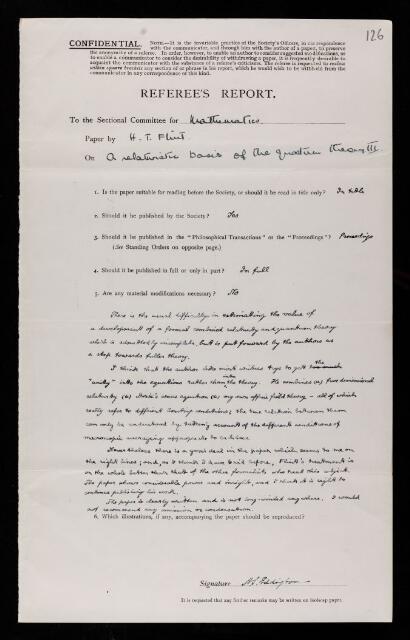 126
CONFIDENTIAL. NOTE.—It is the invariable practice of the Society's Officers, in correspondence
with the communicator, and through him with the author of a paper, to preserve
the anonymity of a referee. In order, however, to enable an author to consider suggested modifications, or
to enable a communicator to consider the desirability of withdrawing a paper, it is frequently desirable to
acquaint the communicator with the substance of a referee's criticisms. The referee is requested to enclose
within square brackets any section or phrase in his report, which he would wish to be withheld from the
communicator in any correspondence of this kind.
REFEREE'S REPORT.
To the Sectional Committee for Mathematics
Paper by H. T. Flint.
On A relativistic basis of the quantum theory III.
1. Is the paper suitable for reading before the Society, or should it be read in title only? In title
2. Should it be published by the Society? Yes
3. Should it be published in the "Philosophical Transactions" or the "Proceedings"? Proceedings
(See Standing Orders on opposite page.)
4. Should it be published in full or only in part? In full
5. Are any material modifications necessary? No
There is the usual difficulty in estimating the value of
a development of a formal combined relativity and quantum theory
which is admittedly incomplete, but is put forward by the authors as
a step towards fuller theory.
I think that the author like most writers tries to get the
"unity" into the equations rather than into the theory. He combines (1) five dimensional
relativity (2) Dirac's wave equation (3) my own affine field theory – all of which
really refer to different limiting conditions; the true relation between them
can only be understood by taking account of the different conditions of
macroscopic averaging appropriate to
Nevertheless there is a good deal in the paper which seems to me on
the right lines; and, as I think I have said before, Flint's treatment is
on the whole better than that of the other formalists who treat this subject.
The paper shows considerable power and insight, and I think it is right to
continue publishing his work.
The paper is clearly written and is not long-winded anywhere. I would
not recommend any omission or condensation.
6. Which illustrations, if any, accompanying the paper should be reproduced?
Signature A. S. Eddington
It is requested that any further remarks may be written on foolscap paper.